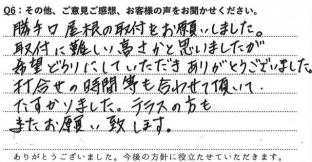 Q6：その他、ご意見ご感想、お客様の声をお聞かせください。
勝手口屋根の取付をお願いしました。
取付に難しい高さかと思いましたが
希望どうりにしていただきありがとうございました。
打合せの時間等も合わせて頂いて、
たすかりました。テラスの方も
またお願い致します。
ありがとうございました。今後の方針に役立たせていただきます。